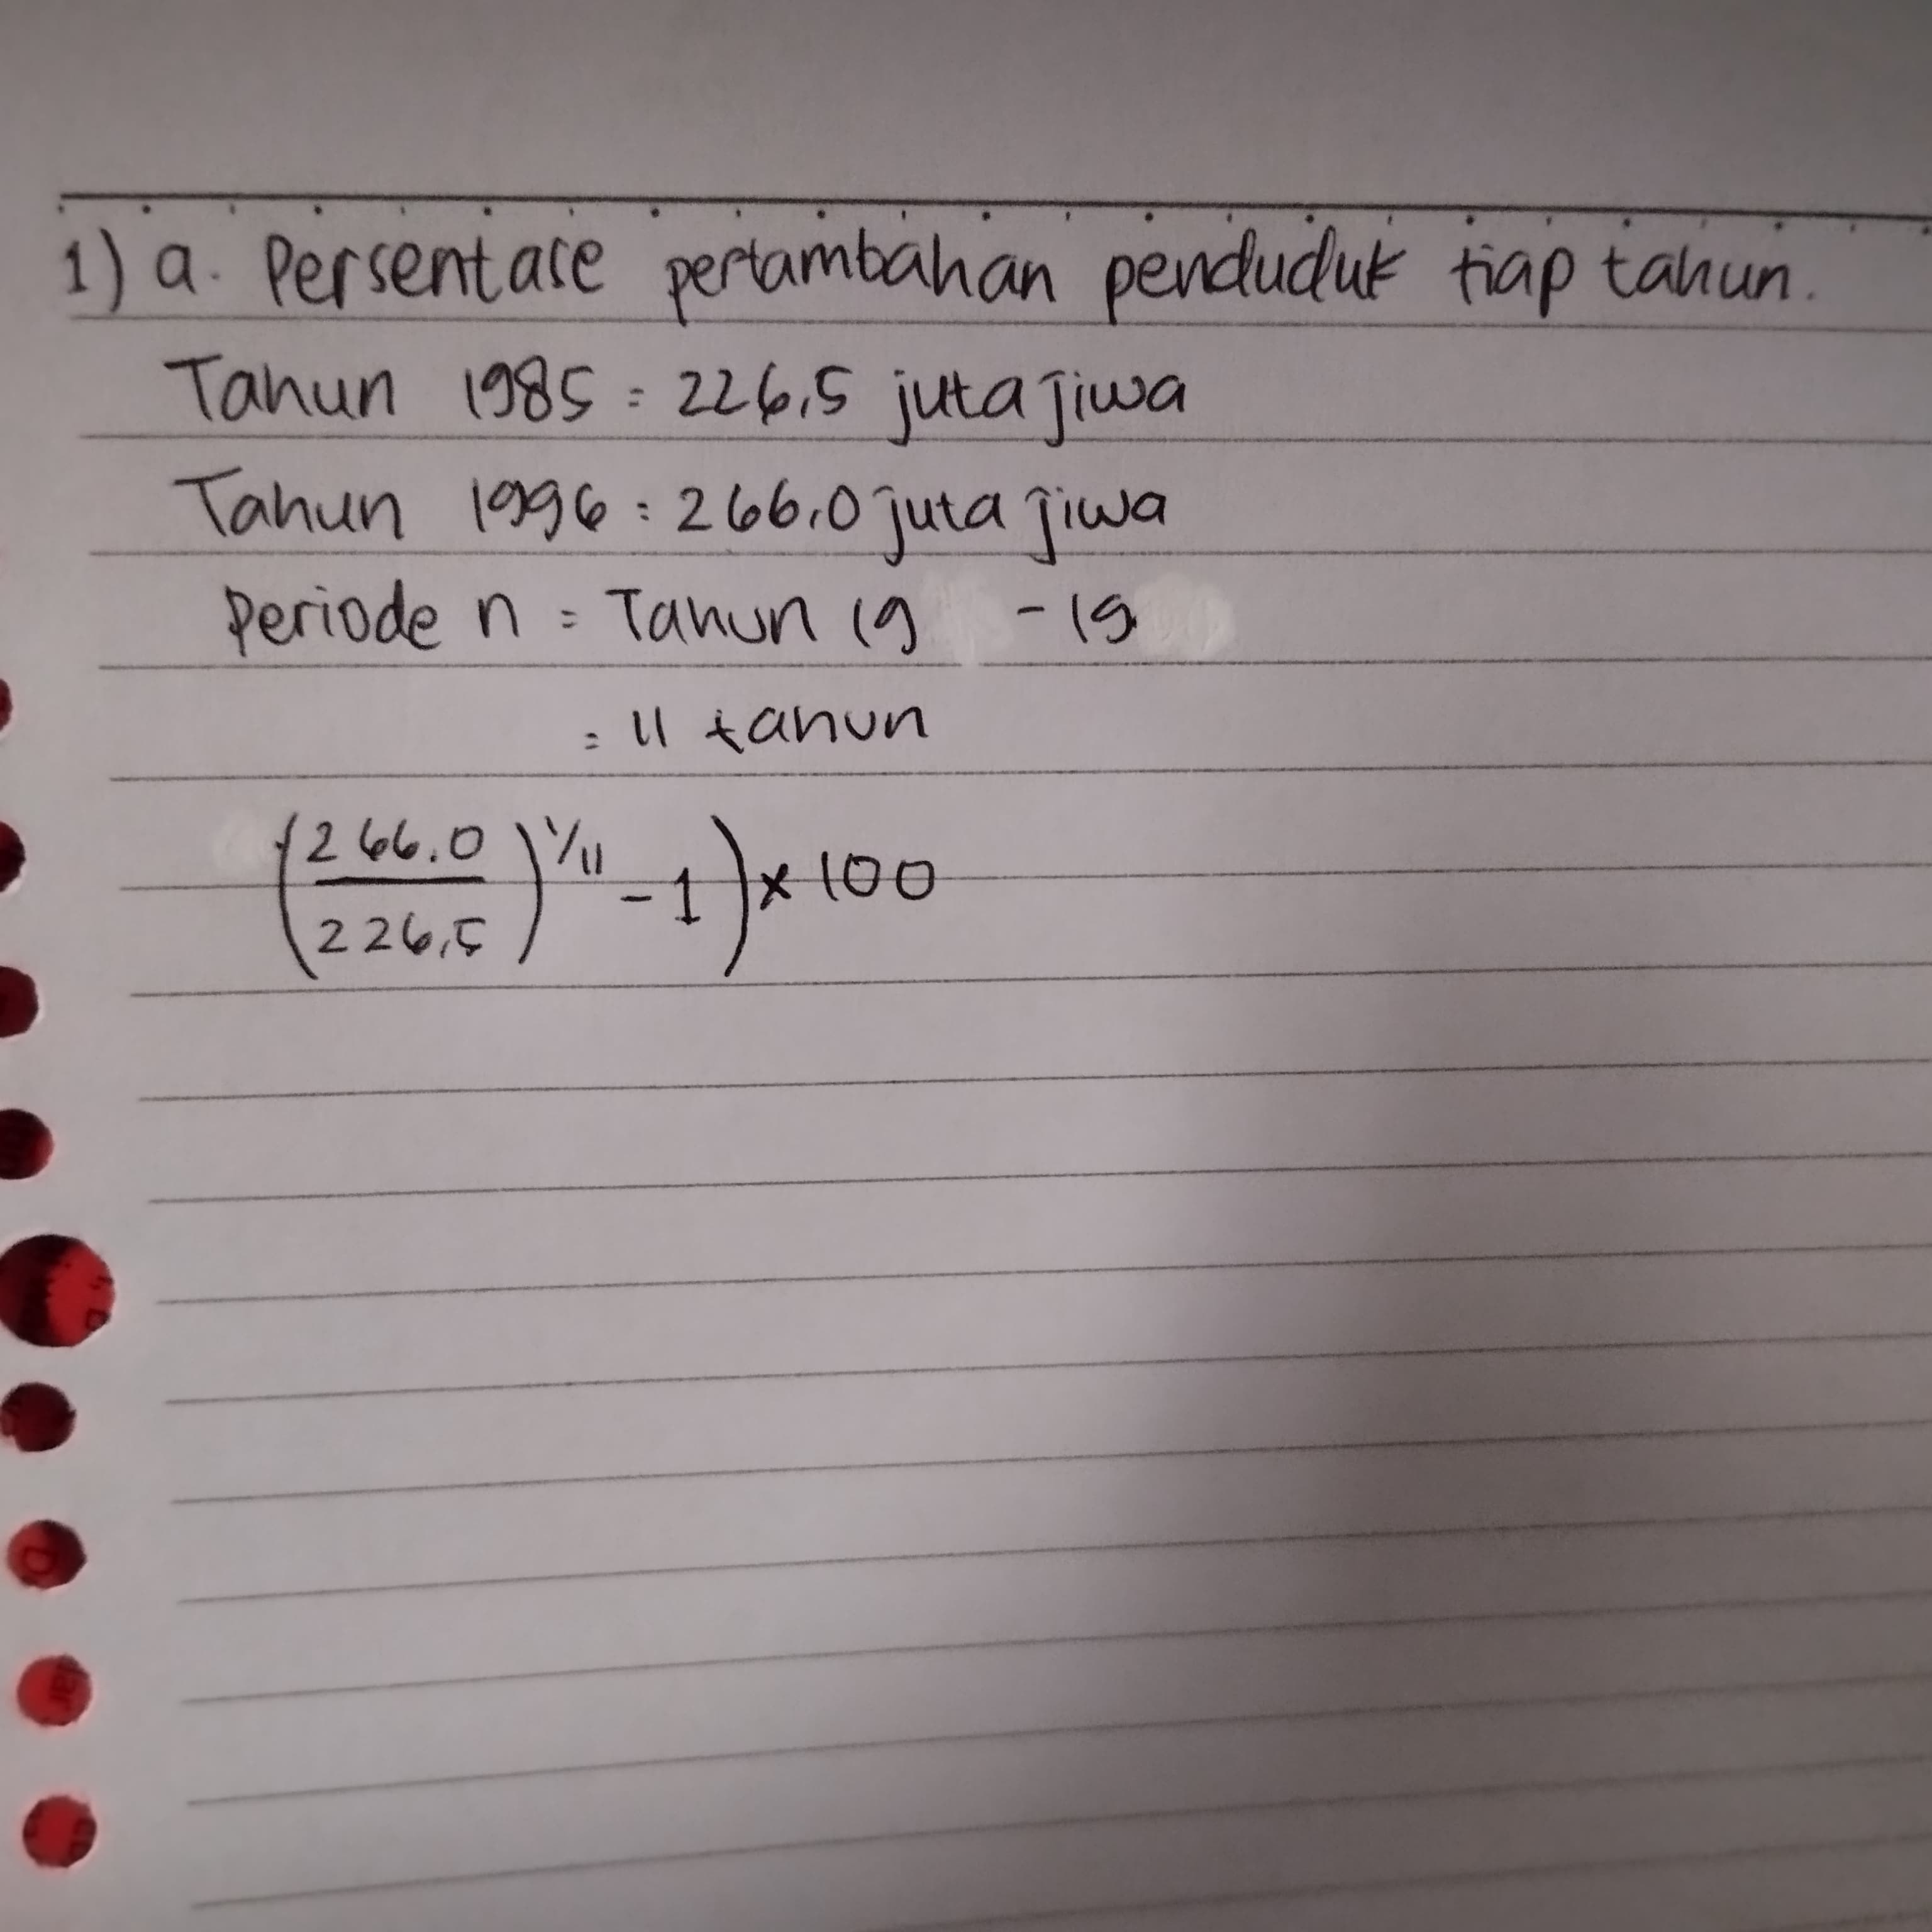 1) a. Persentase pertambahan penduduk tiap tahun.
Tahun 1985 = 226,5 juta jiwa
Tahun 1996 = 266,0 juta jiwa
Periode n = Tahun 19 - 19
= 11 tahun
((266.0/226,5)^1/11 - 1) × 100